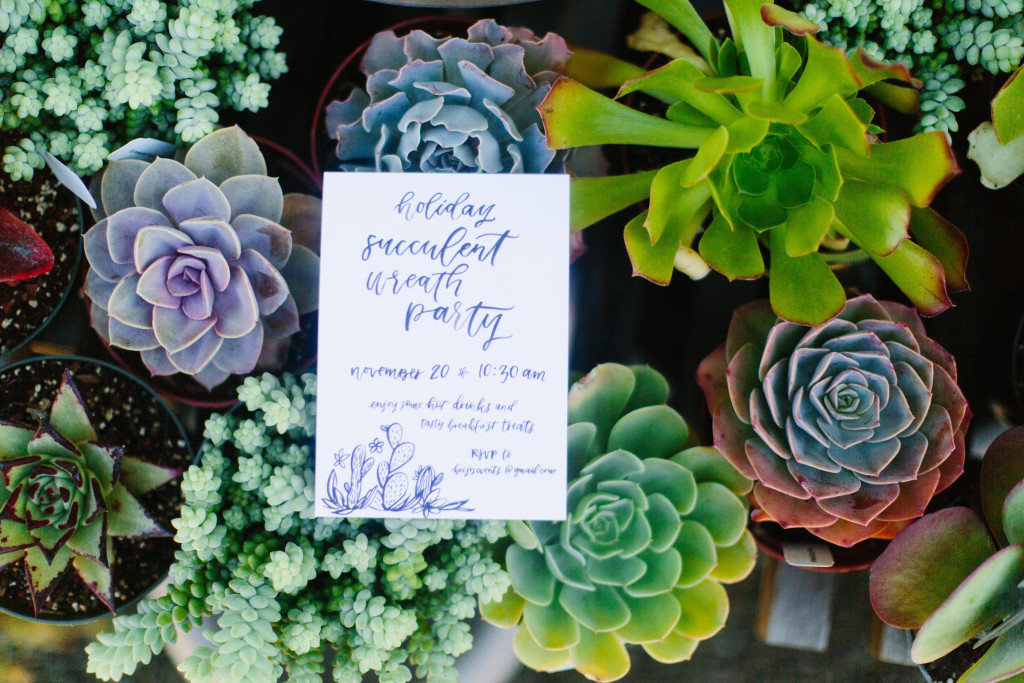 holiday
succulent
wreath
party
november 20 * 10:30 am
enjoy some hot drinks and
tasty breakfast treats
RSVP to
@gmail.com